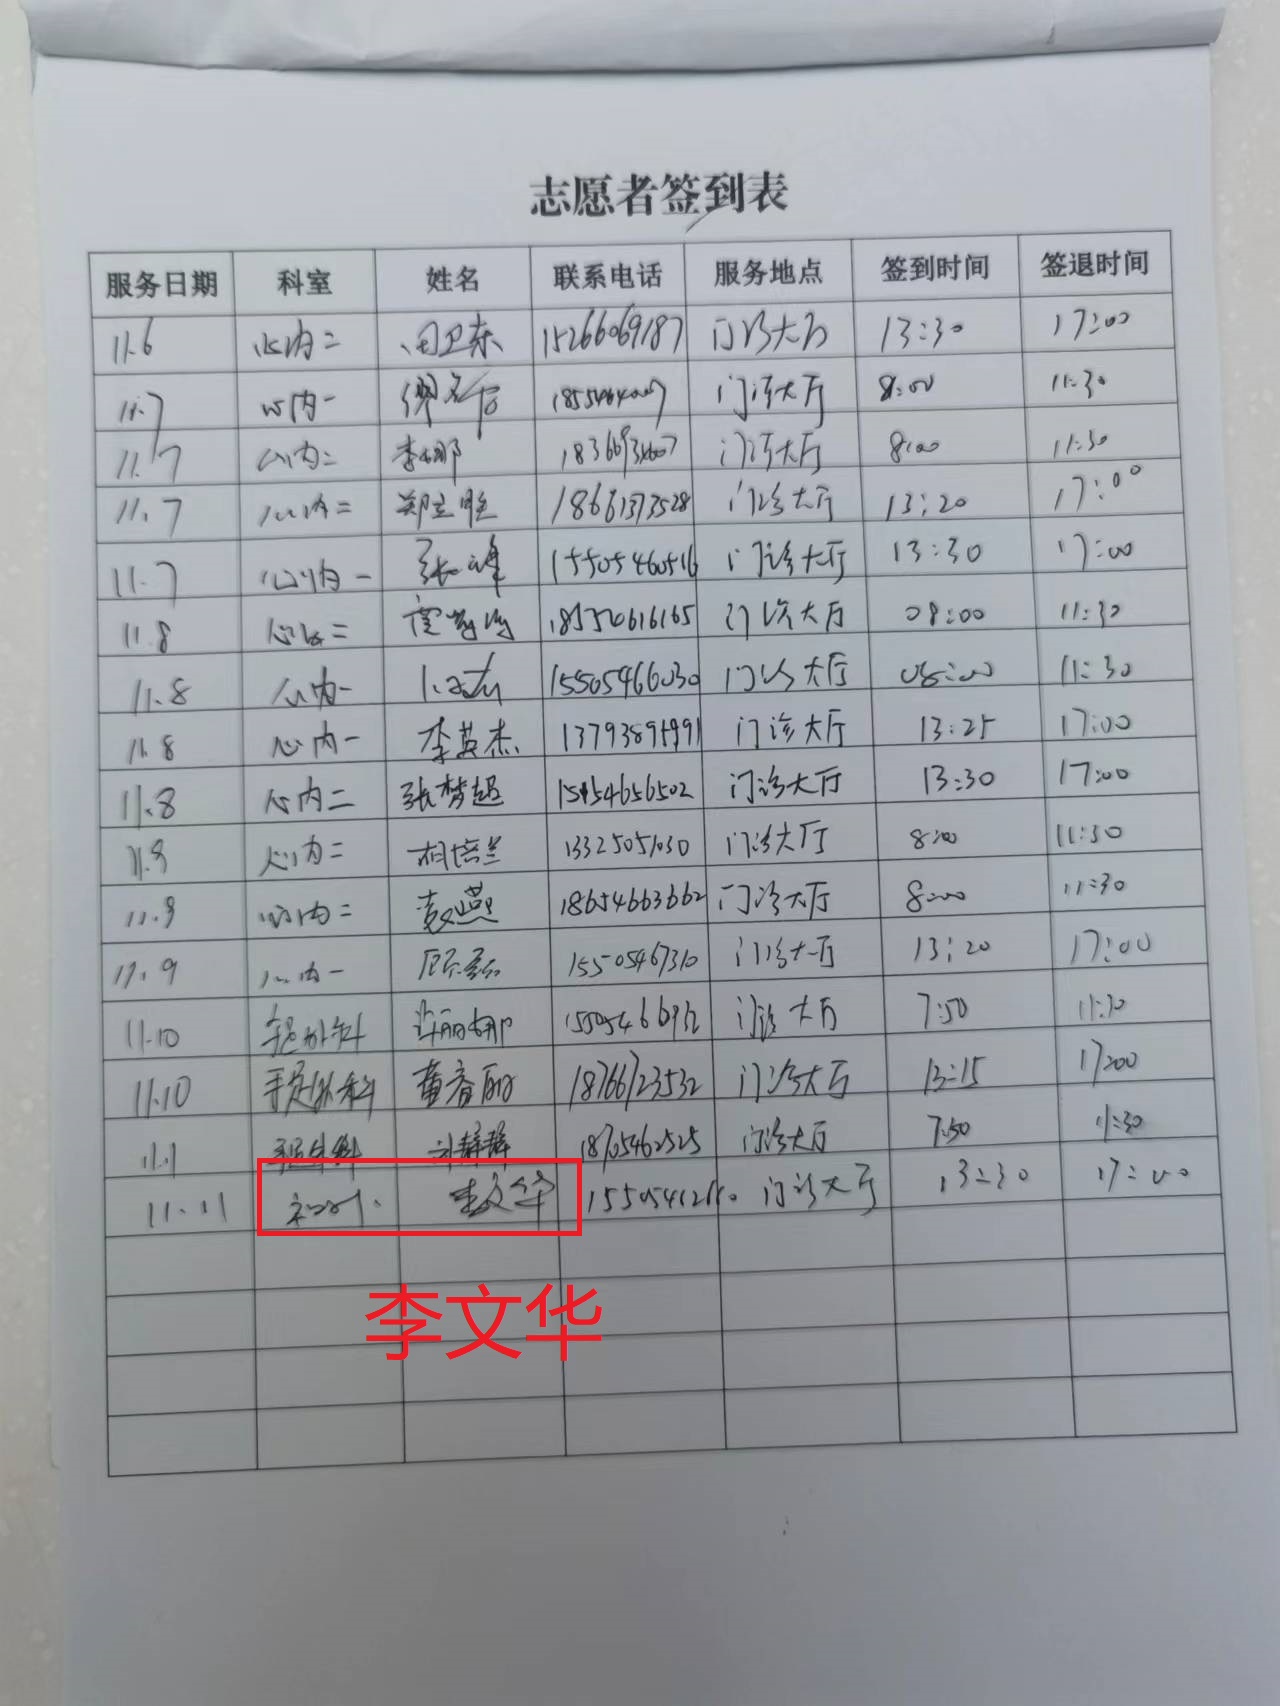 志愿者签到表
服务日期 科室 姓名 联系电话 服务地点 签到时间 签退时间
11.6 心内二 田卫东 15266069187 门诊大厅 13:30 17:00
11.7 心内一 门诊大厅 8:00 11:30
11.7 心内二 李娜 门诊大厅 8:00 11:30
11.7 心内二 郑立胜 18661373528 门诊大厅 13:20 17:00
11.7 心内一 张峰 15505460516 门诊大厅 13:30 17:00
11.8 心内二 门诊大厅 08:00 11:30
11.8 心内一 15505466030 门诊大厅 08:00 11:30
11.8 心内一 李英杰 门诊大厅 13:25 17:00
11.8 心内二 张梦超 15954656502 门诊大厅 13:30 17:00
11.9 心内二 相培兰 13325051030 门诊大厅 8:00 11:30
11.9 心内二 袁燕 18654663662 门诊大厅 8:00 11:30
11.9 心内一 顾磊 15505467310 门诊大厅 13:20 17:00
11.10 手足外科 许丽娜 门诊大厅 7:50 11:30
11.10 手足外科 董春丽 18766723532 门诊大厅 13:15 17:00
11.11 手足外科 18705462525 门诊大厅 7:50 11:30
11.11 李文华 门诊大厅 13:30 17:00
李文华